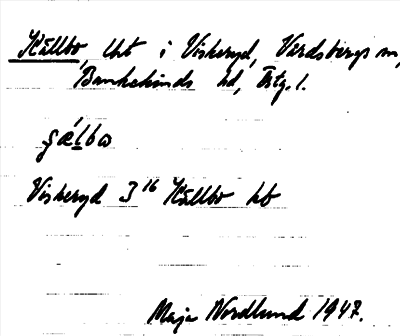 Källbo, lht i Viskeryd, Värdsbergs sn,
Bankekinds hd, Östg. l.
Viskeryd 3¹⁶ Källbo lht
Maja Nordlund 1947.